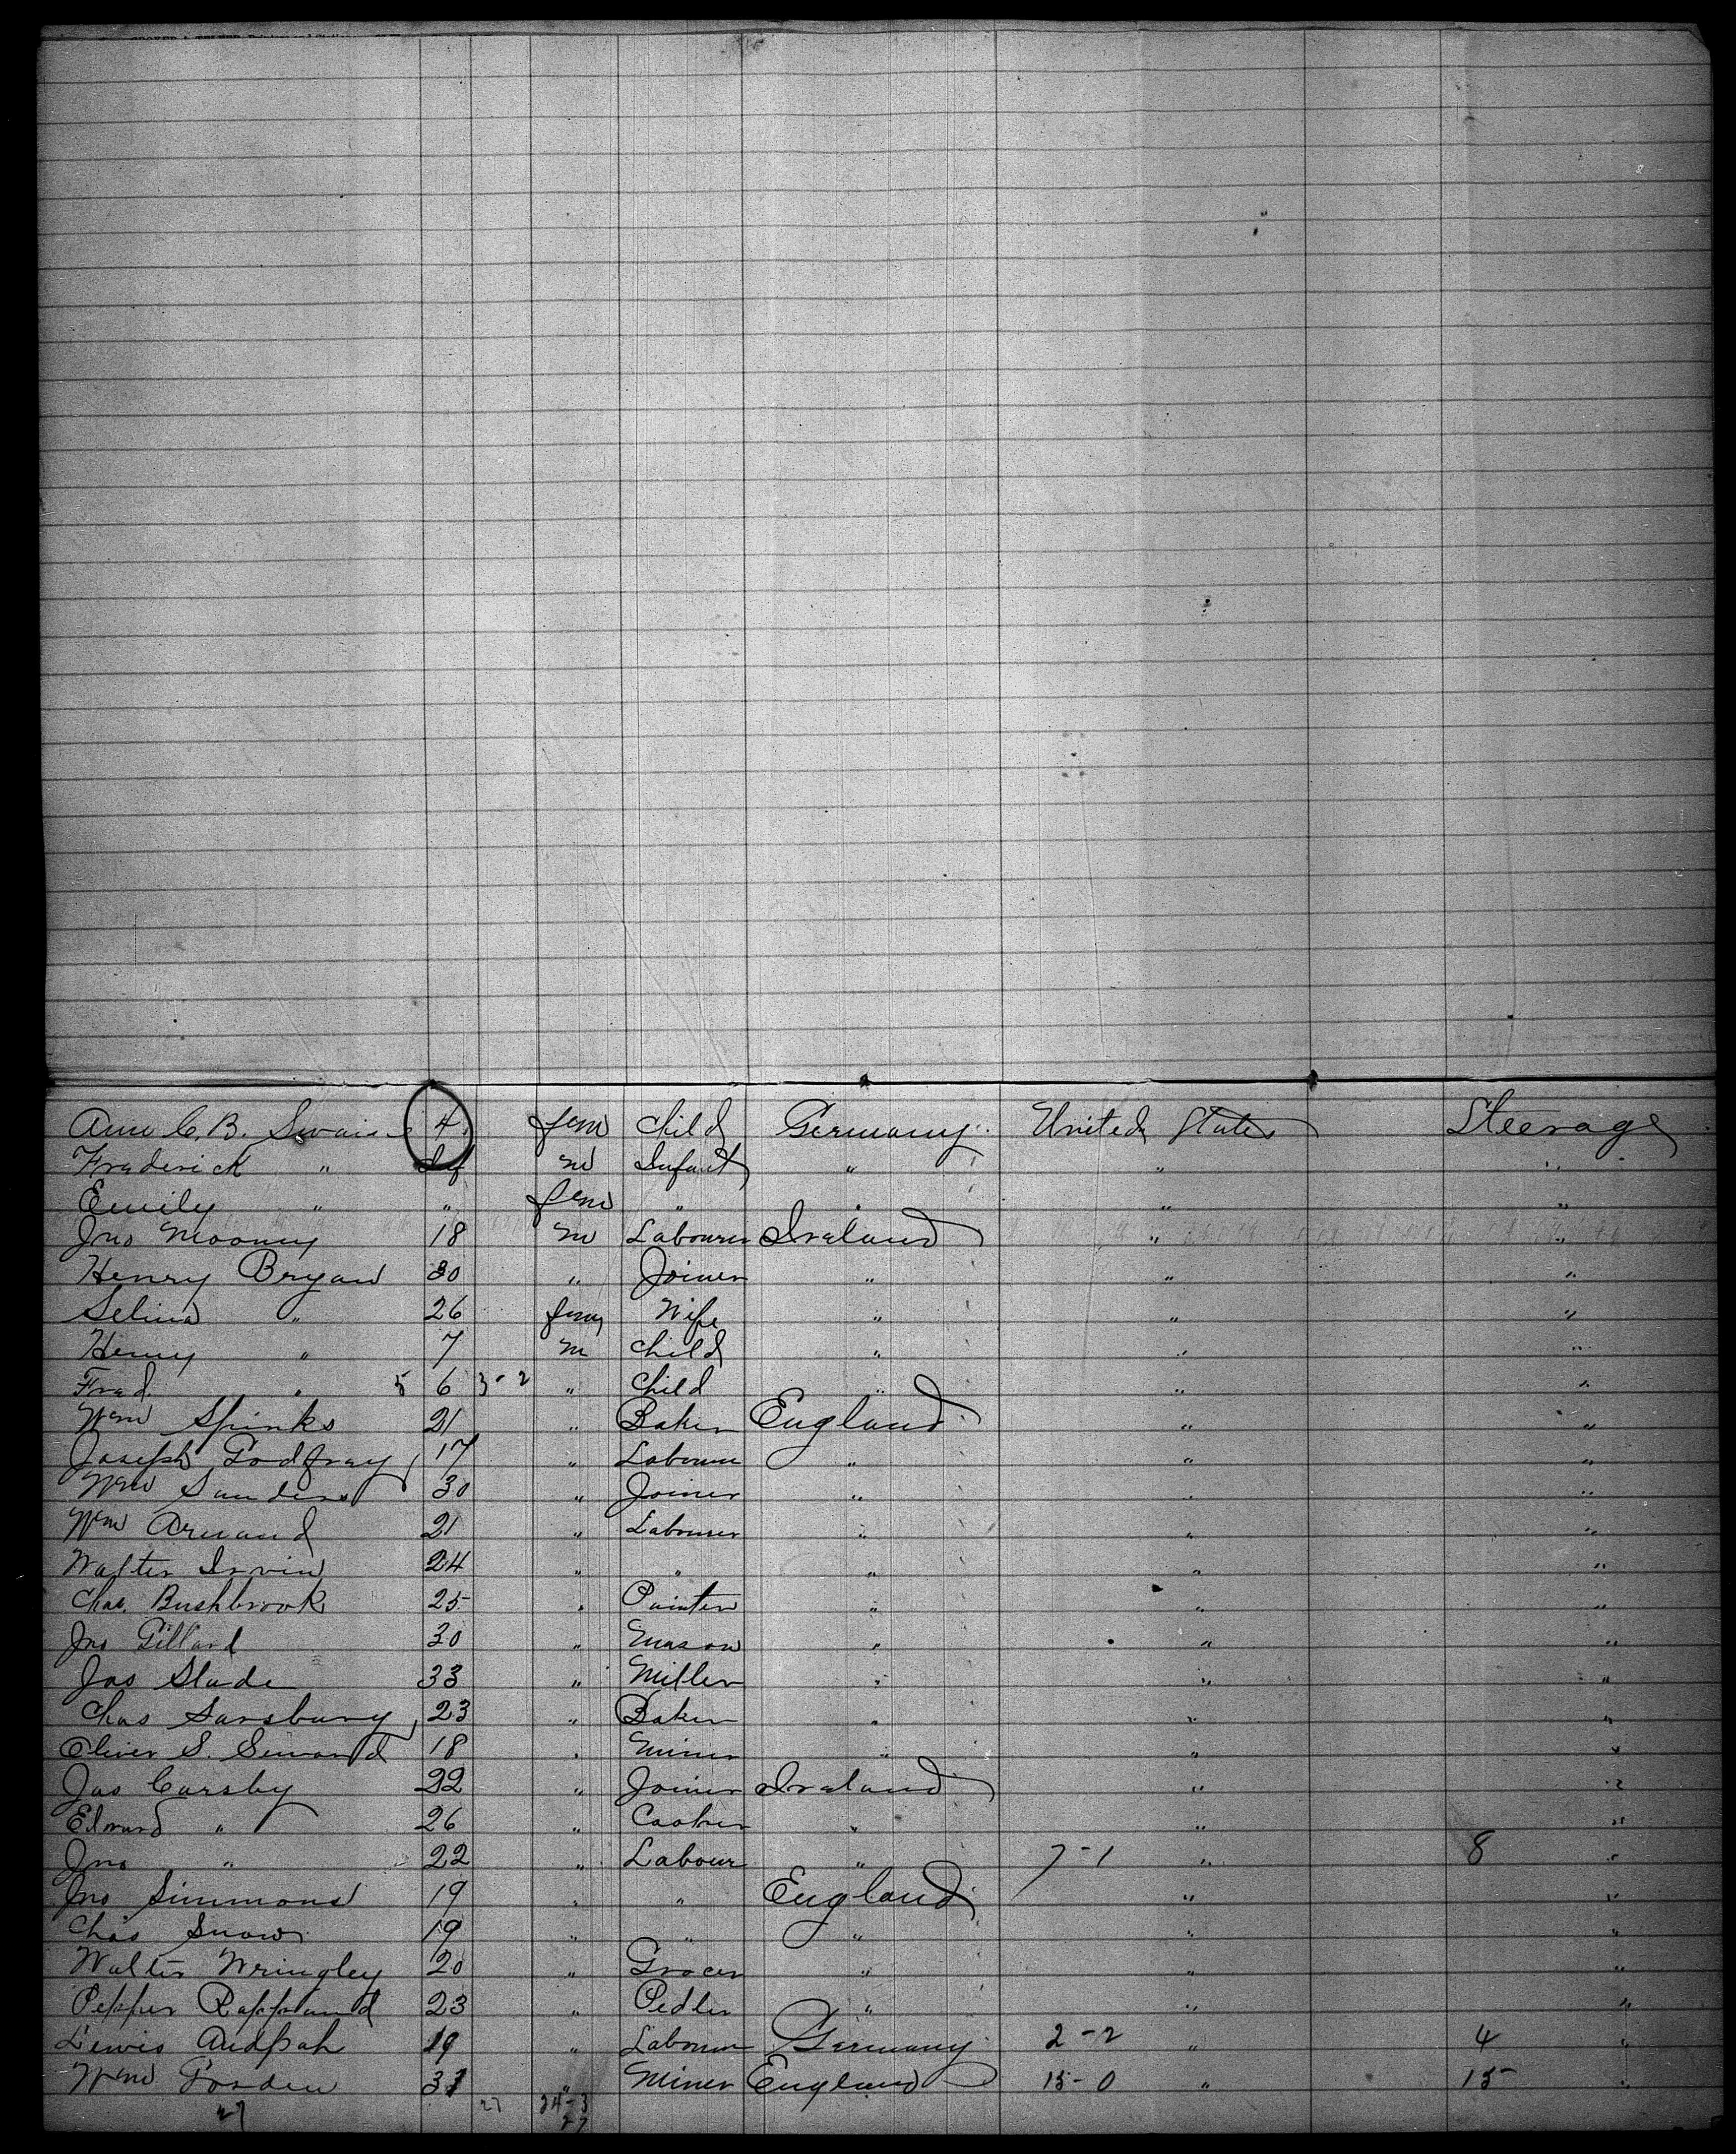 Ann C. B. Swain 4 fem Child Germany United States Steerage
Frederick " Inf m Infant " " "
Emily " " fem " " " "
Jno Mooney 18 m Labourer Ireland " "
Henry Bryan 30 " Joiner " " "
Selina " 26 fem Wife " " "
Henry " 7 m Child " " "
Fred. " 5 6 3-2 " Child " " "
Wm Spinks 21 " Baker England " "
Joseph Godfray 17 " Labourer " " "
Wm Sanders 30 " Joiner " " "
Wm Armand 21 " Labourer " " "
Walter Irvin 24 " " " " "
Chas. Bushbrook 25 " Painter " " "
Jno Gillard 30 " Mason " " "
Jas Slade 33 " Miller " " "
Chas Sansbury 23 " Baker " " "
Oliver S. Seward 18 " Miner " " "
Jas Carsby 22 " Joiner Ireland " "
Edmund " 26 " " " "
Jno " 22 " Labour " 7-1 " 8 "
Jno Simmons 19 " " England " "
Chas Snow 19 " " " " "
Walter Wringley 20 " Grocer " " "
Pepper Rappland 23 " Pedler " " "
Lewis 19 " Labourer Germany 2-2 " 4 "
Wm 31 " Miner England 15-0 " 15 "
27 27 24-3
27